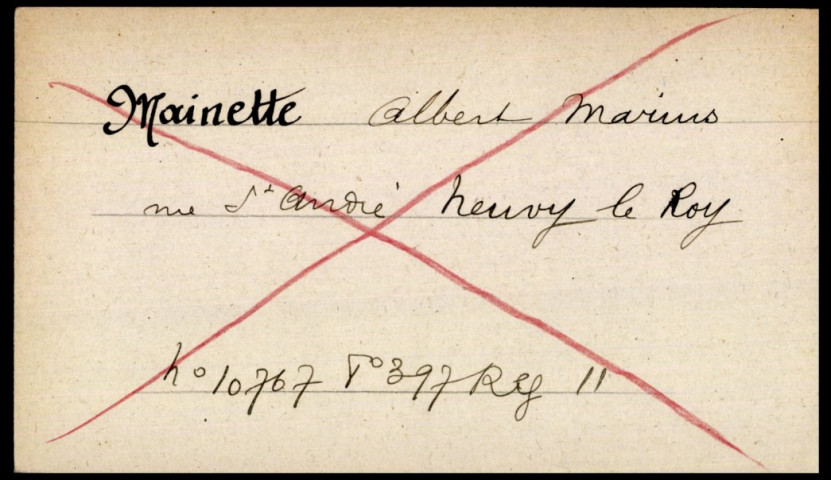 Mainette Albert Marius
rue St André Neuvy le Roy
No 10767 Fo 397 Reg 11